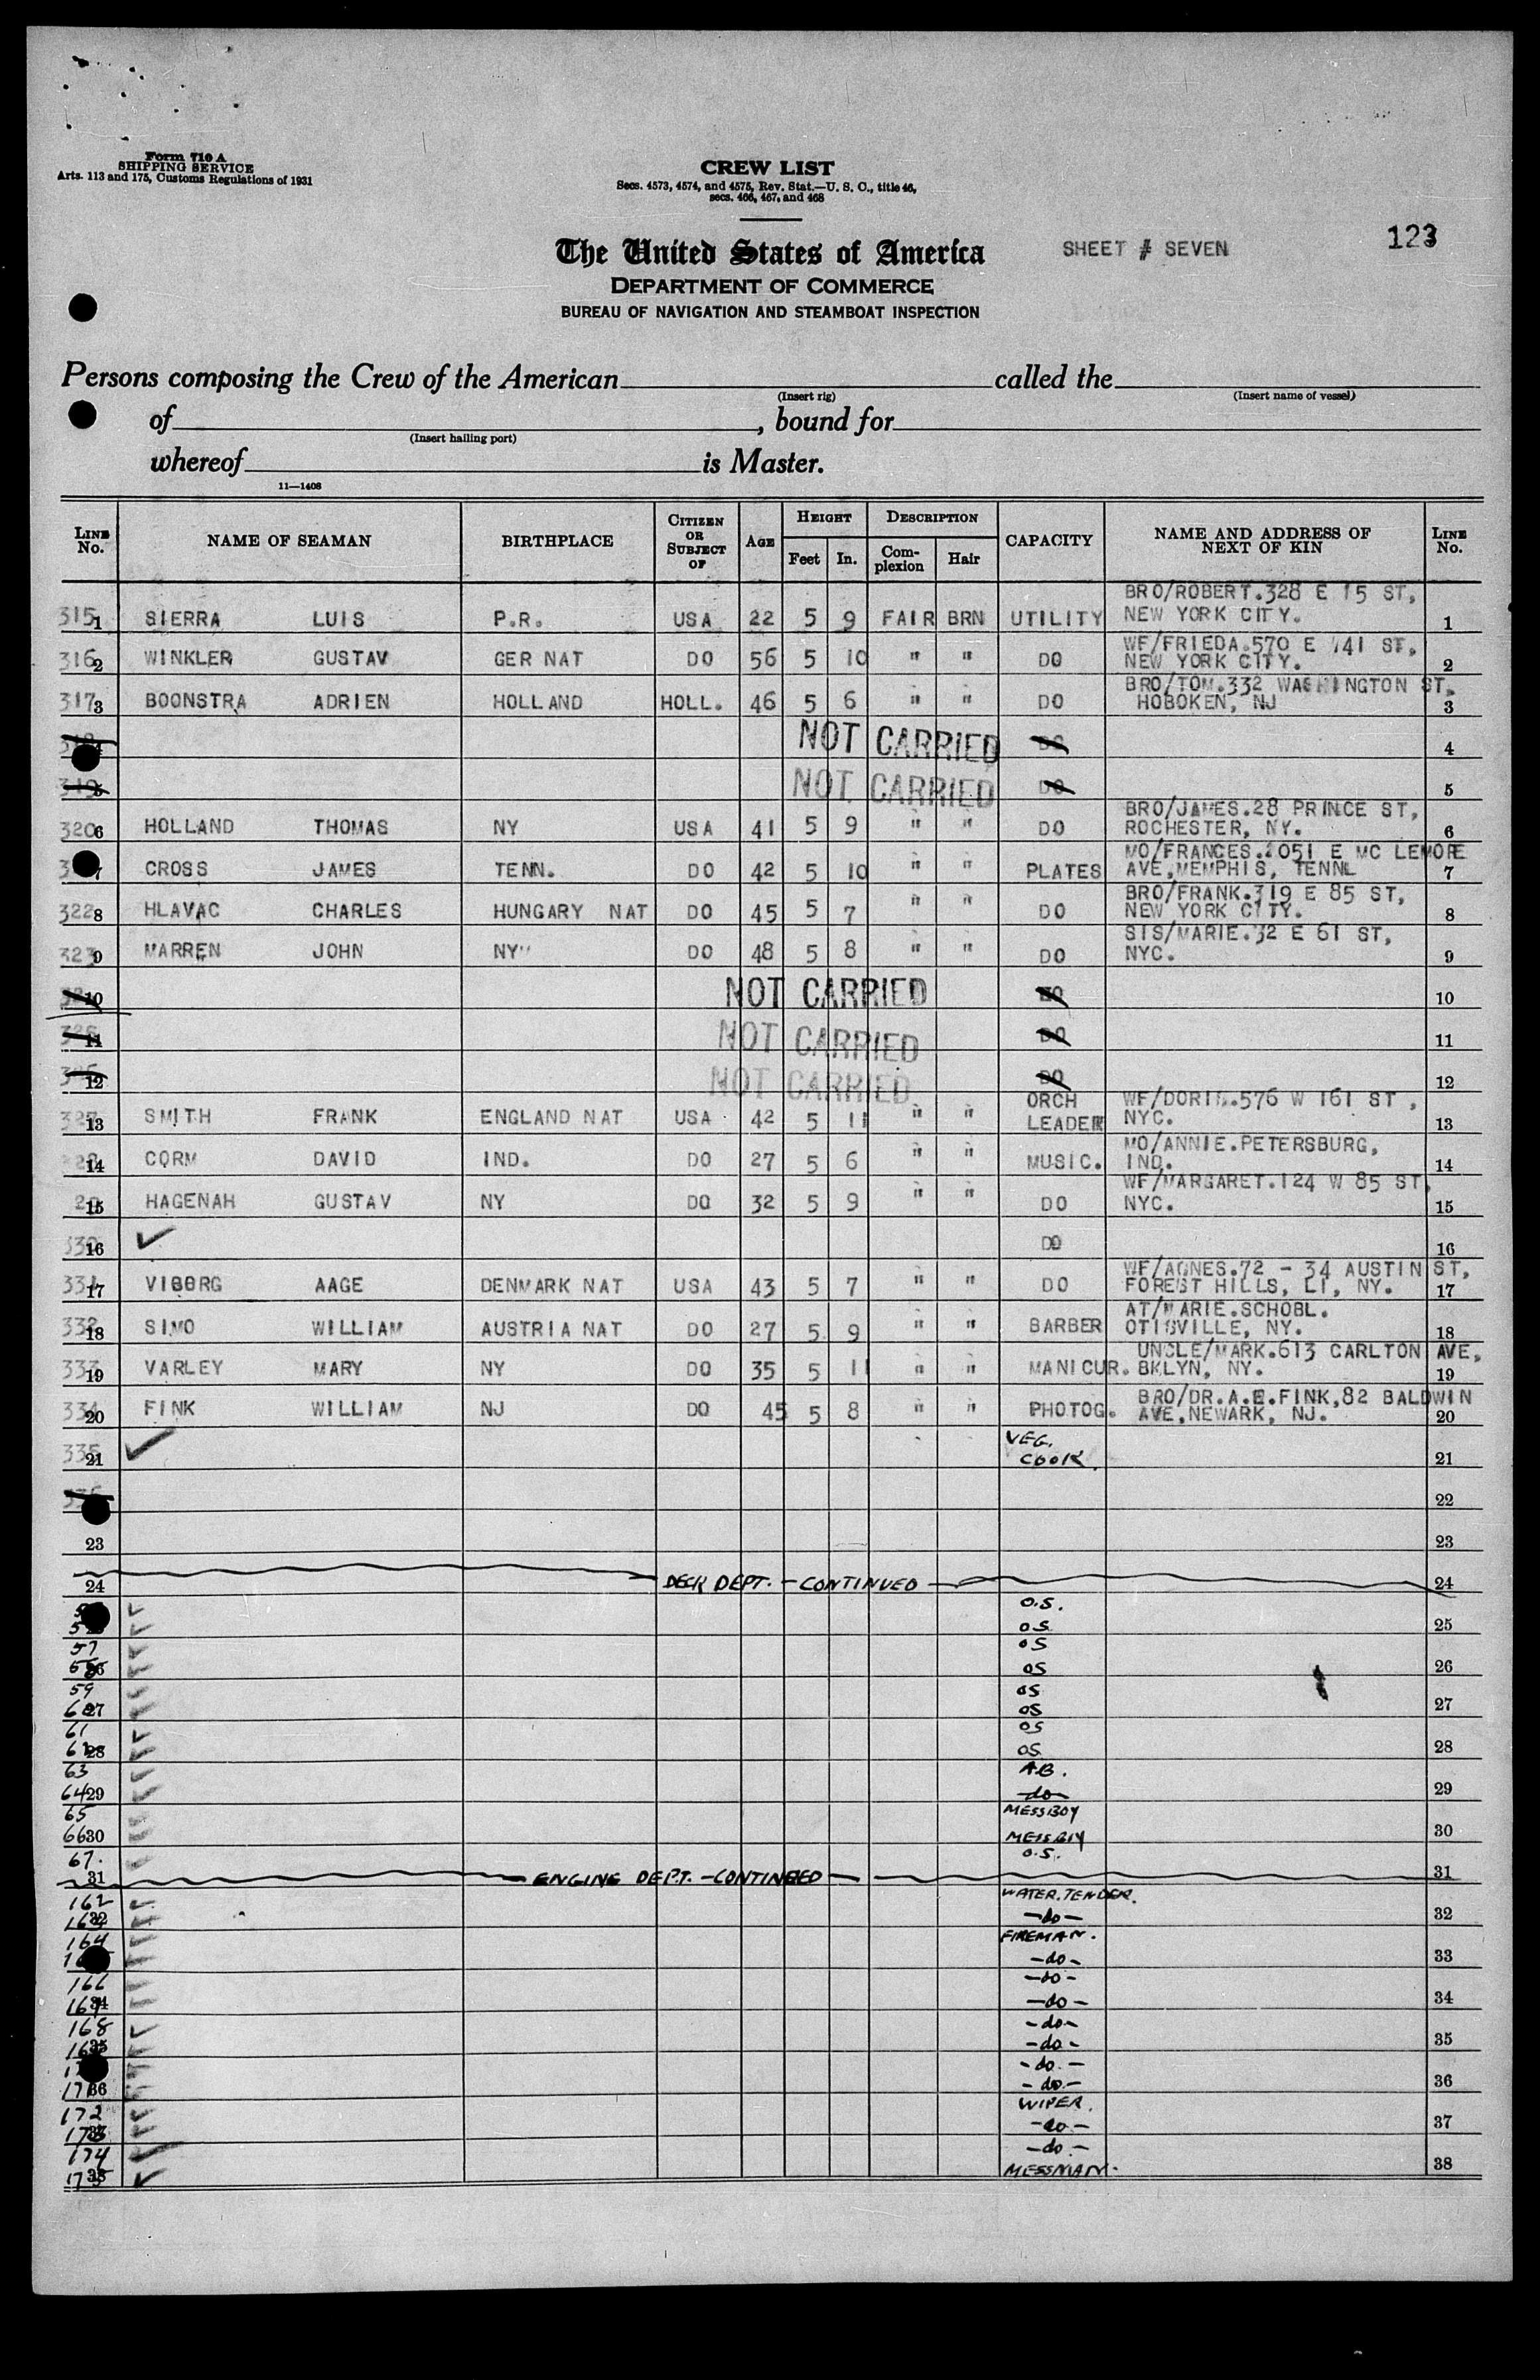 Form 710 A
SHIPPING SERVICE
Arts. 113 and 175, Customs Regulations of 1931
CREW LIST
Secs. 4573, 4574, and 4575, Rev. Stat.—U. S. C., title 46,
secs. 466, 467, and 468
The United States of America
SHEET # SEVEN
123
DEPARTMENT OF COMMERCE
BUREAU OF NAVIGATION AND STEAMBOAT INSPECTION
Persons composing the Crew of the American called the
(Insert rig) (Insert name of vessel)
of , bound for
(Insert hailing port)
whereof is Master.
11—1408
LINE No. NAME OF SEAMAN BIRTHPLACE CITIZEN OR SUBJECT OF AGE HEIGHT Feet In. DESCRIPTION Complexion Hair CAPACITY NAME AND ADDRESS OF NEXT OF KIN LINE No.
BRO/ROBERT.328 E 15 ST,
315 1 SIERRA LUIS P.R. USA 22 5 9 FAIR BRN UTILITY NEW YORK CITY. 1
WF/FRIEDA.570 E 141 ST,
316 2 WINKLER GUSTAV GER NAT DO 56 5 10 " " DO NEW YORK CITY. 2
BRO/TOM.332 WASHINGTON ST.
317 3 BOONSTRA ADRIEN HOLLAND HOLL. 46 5 6 " " DO HOBOKEN, NJ 3
NOT CARRIED DO 4
NOT CARRIED DO 5
BRO/JAMES.28 PRINCE ST,
320 6 HOLLAND THOMAS NY USA 41 5 9 " " DO ROCHESTER, NY. 6
MO/FRANCES.1051 E MC LEMORE
7 CROSS JAMES TENN. DO 42 5 10 " " PLATES AVE,MEMPHIS, TENN. 7
BRO/FRANK.319 E 85 ST,
322 8 HLAVAC CHARLES HUNGARY NAT DO 45 5 7 " " DO NEW YORK CITY. 8
SIS/MARIE.32 E 61 ST,
323 9 MARREN JOHN NY" DO 48 5 8 " " DO NYC. 9
10 NOT CARRIED DO 10
11 NOT CARRIED DO 11
12 NOT CARRIED DO 12
ORCH WF/DORIS.576 W 161 ST ,
327 13 SMITH FRANK ENGLAND NAT USA 42 5 11 " " LEADER NYC. 13
MO/ANNIE.PETERSBURG,
14 CORM DAVID IND. DO 27 5 6 " " MUSIC. IND. 14
WF/MARGARET.124 W 85 ST,
15 HAGENAH GUSTAV NY DO 32 5 9 " " DO NYC. 15
330 16 ✓ DO 16
WF/AGNES.72 - 34 AUSTIN ST,
331 17 VIBORG AAGE DENMARK NAT USA 43 5 7 " " DO FOREST HILLS, LI, NY. 17
AT/MARIE.SCHOBL.
332 18 SIMO WILLIAM AUSTRIA NAT DO 27 5 9 " " BARBER OTISVILLE, NY. 18
UNCLE/MARK.613 CARLTON AVE,
333 19 VARLEY MARY NY DO 35 5 11 " " MANICUR. BKLYN, NY. 19
BRO/DR.A.E.FINK,82 BALDWIN
334 20 FINK WILLIAM NJ DO 45 5 8 " " PHOTOG. AVE,NEWARK, NJ. 20
335 21 ✓ VEG. COOK. 21
22
23 23
24 DECK DEPT. - CONTINUED 24
✓ O.S.
✓ OS 25
57 ✓ OS
58 26 ✓ OS 26
59 ✓ OS
60 27 ✓ OS 27
61 ✓ OS
62 28 ✓ OS 28
63 ✓ A.B.
64 29 ✓ -do- 29
65 MESSBOY
66 30 MESSBOY 30
67. ✓ O.S.
31 ENGINE DEPT. - CONTINUED 31
162 ✓ WATER.TENDER.
163 32 ✓ -do- 32
164 ✓ FIREMAN.
✓ -do- 33
166 ✓ -do-
167 34 ✓ -do- 34
168 ✓ -do-
169 35 ✓ -do- 35
✓ -do-
171 36 ✓ -do- 36
172 ✓ WIPER.
173 37 ✓ -do- 37
174 ✓ -do-
175 38 ✓ MESSMAN. 38